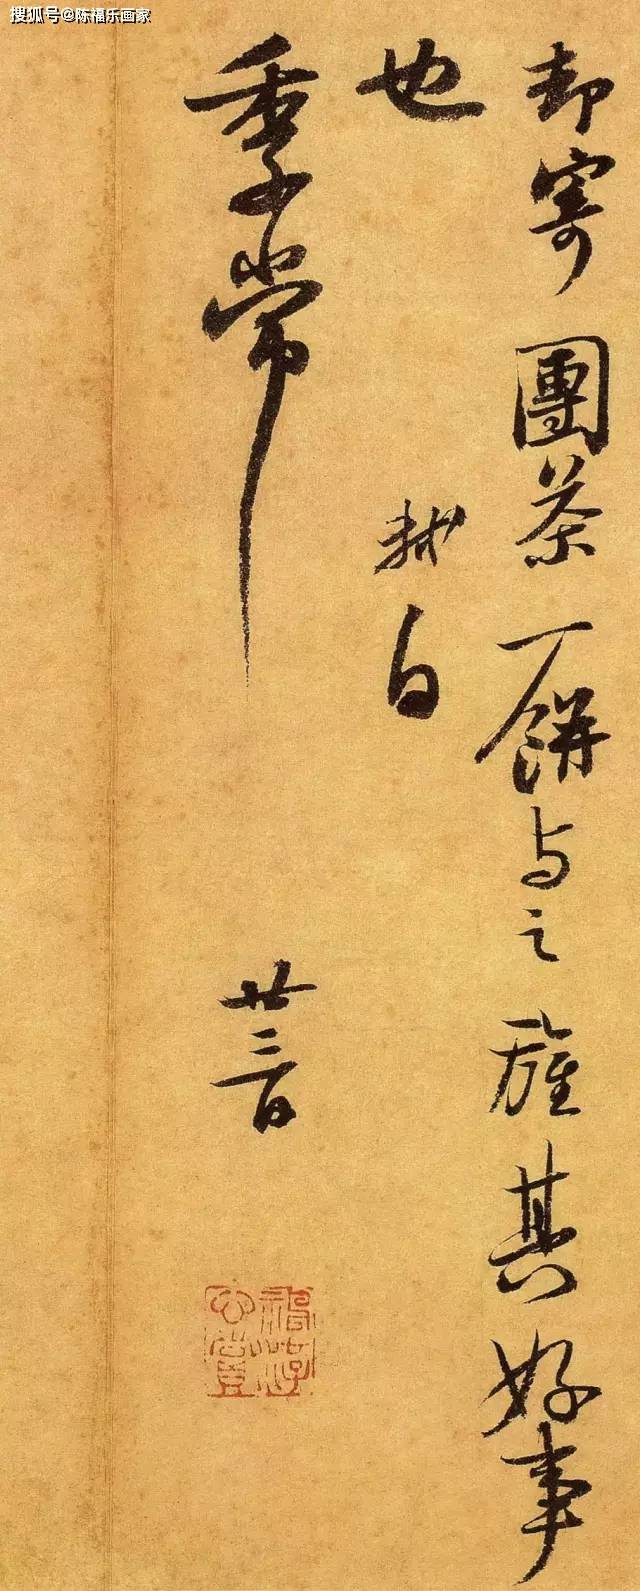 搜狐号@陈福乐画家
却寄團茶一餅与之旌其好事
也 軾白
季常 廿三日